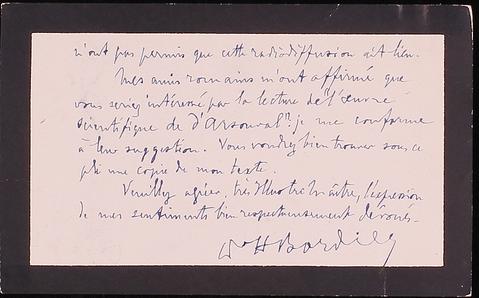 n'ont pas permis que cette radiodiffusion ait lieu.
Mes amis romains m'ont affirmé que
vous seriez intéressé par la lecture de l'œuvre
scientifique de d'Arsonval : je me conforme
à leur suggestion. Vous voudrez bien trouver sous ce
pli une copie de mon texte.
Veuillez agréer, très illustre Maître, l'expression
de mes sentiments bien respectueusement dévoués.